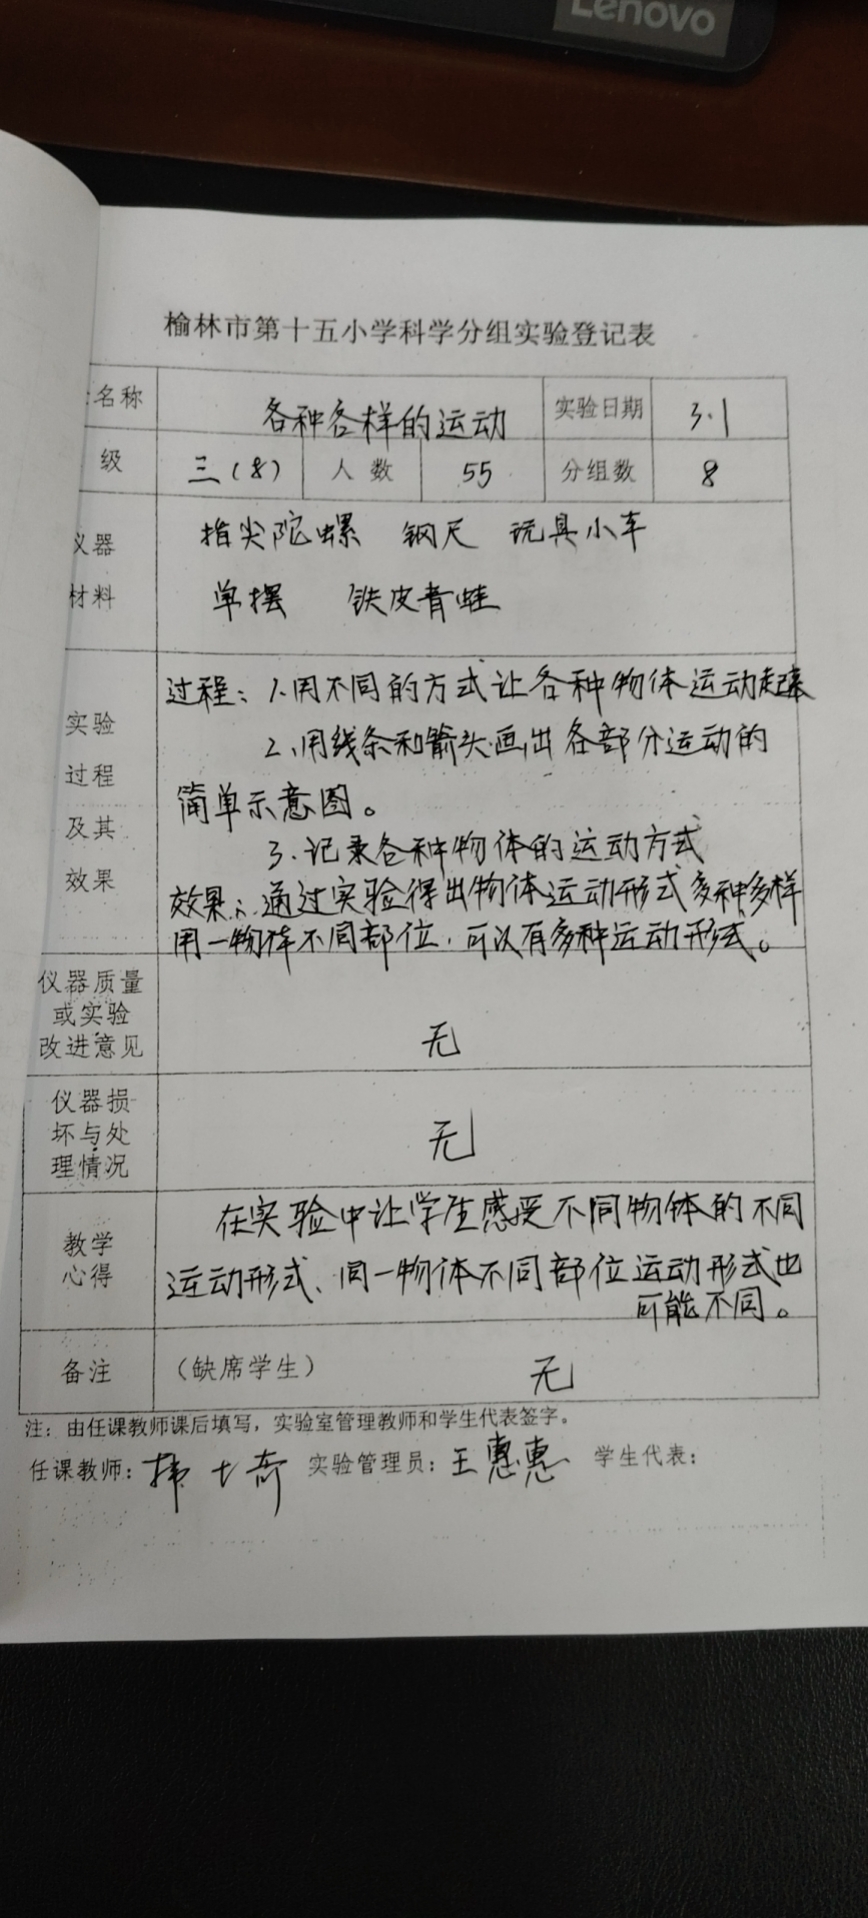 Lenovo
榆林市第十五小学科学分组实验登记表
名称 各种各样的运动 实验日期 3.1
级 三(8) 人数 55 分组数 8
仪器 指尖陀螺 钢尺 玩具小车
材料 单摆 铁皮青蛙
实验
过程
及其
效果
过程:1.用不同的方式让各种物体运动起来
2.用线条和箭头画出各部分运动的
简单示意图。
3.记录各种物体的运动方式
效果:通过实验得出物体运动形式多种多样
用一物体不同部位,可以有多种运动形式。
仪器质量
或实验
改进意见
无
仪器损
坏与处
理情况
无
教学
心得
在实验中让学生感受不同物体的不同
运动形式、同一物体不同部位运动形式也
可能不同。
备注 (缺席学生) 无
注:由任课教师课后填写,实验室管理教师和学生代表签字。
任课教师: 实验管理员:王惠惠 学生代表: